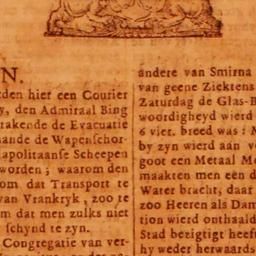 N.
den hier een Courier
y, den Admiraal Bing
rakende de Evacuatie
ande de Wapenschor-
apolitaanse Scheepen
worden; waarom den
om dat Transport te
van Vrankryk, zoo te
m dat men zulks niet
schynd te zyn.
Congregatie van ver-
andere van Smirna
van geene Ziektens
Zaturdag de Glas-B
woordigheyd wierd
6 vier. breed was: M
by zyn wierd aan v
goot een Metaal Mo
maakten men een d
Water bracht, daar
zoo Heeren als Dam
tion wierd onthaald
Stad bezigtigt heeft
hy weder herwaards